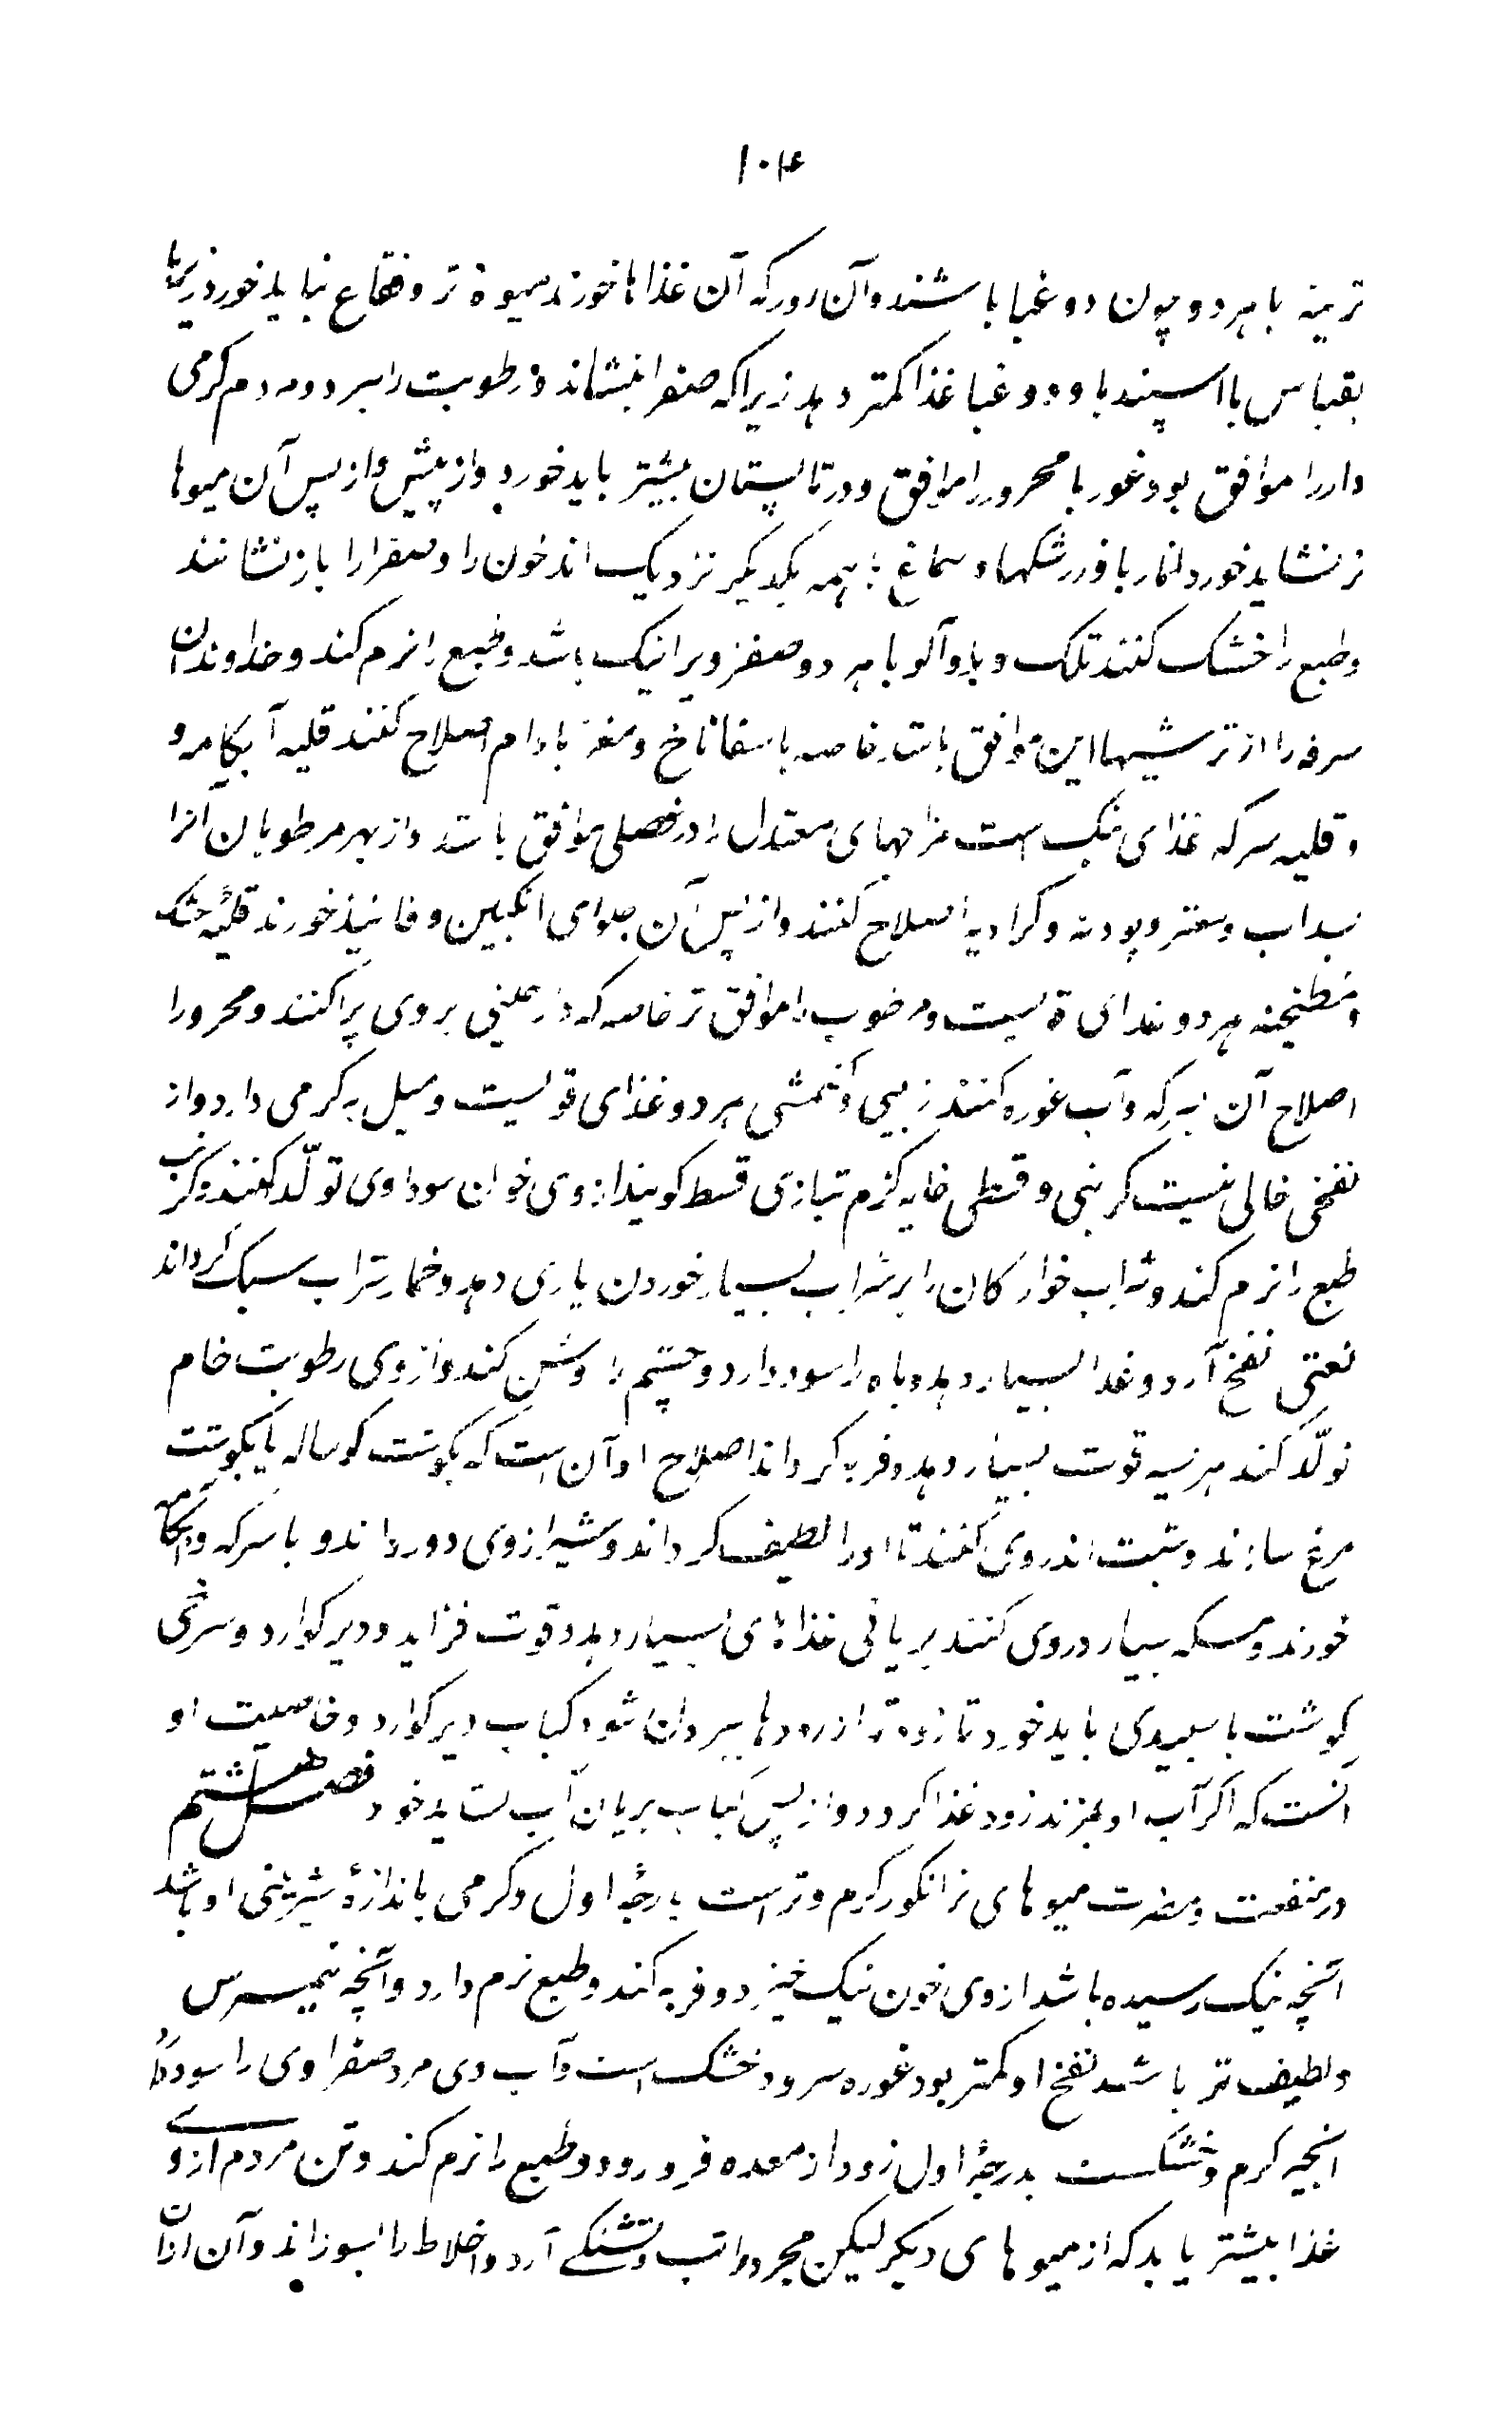 ۱۰۴
ترینه با هر دو چون دوغبا باشند و آن روز که آن غذاها خورند میوهٔ تر و فقاع نباید خورد زیربا
بقیاس با اسپیدبا و دوغبا غذا کمتر دهد زیرا که صفرا بنشاند و رطوبت را ببرد و مردم کرمی
دار را موافق بود غوربا محرور را موافق و در تابستان بیشتر باید خورد و از پیش و از پس آن میوها
تر نشاید خورد اناربا و زرشکبا و سماغ با همه بیکدیکر نزدیک اند خون را و صفرا را باز نشانند
و طبع را خشک کنند تلک وبا و آلوبا هر دو صفرا ویرا نیک باشد و طبع را نرم کند و خداوندان
سرفه را از ترشیها این موافق باشد خاصه باسفاناخ و مغز بادام اصلاح کنند قلیه آبکامه و
و قلیه سرکه غذای نیک است مزاجهای معتدل را در فصلی موافق باشد و از بهر مرطوبان آنرا
بسداب و سعتر و پودنه و کراویه اصلاح کنند و از پس آن حلوای انکبین و فانیذ خورند قلیهٔ خشک
و مطنجنه هر دو غذای قویست و مرطوب را موافق تر خاصه که دارچینی بروی پراکنند و محرور را
اصلاح آن بسرکه و آب غوره کنند زبیبی و کشمشی هر دو غذای قویست و میل بکرمی دارد و از
نفخی خالی نیست کرنبی و قنبطی خایه کزم بتازی قسط کویند از وی خون سوداوی تولّد کنند و کرنب
طبع را نرم کند و شراب خوارکان را بر شراب بسیار خوردن یاری دهد و خمار شراب سبک کرداند
نفخ آرد و غذا بسیار دهد و باه را سود دارد و چشم را روشن کند و از وی رطوبت خام
تولّد کند هریسه قوت بسیار دهد و فربه کرداند اصلاح او آن است که بکوشت کوساله یا بکوشت
مرغ سازند و شبت اندروی کنند تا او را لطیف کرداند و شیر از وی دور دارند و با سرکه و آبکامه
خورند و مسکه بسیار دروی کنند بریانی غذاهای بسیار دهد و قوت فزاید و دیر کوارد و سرخی
کوشت با سپیدی باید خورد تا زودتر از رودها بیرون شود کباب دیر کوارد و خاصیت او
آنست که اکر آب او بمزند زود غذا کردد و از پس کباب و بریان آب نشاید خورد فصل هشتم
در منفعت و مضرت میوهای تر انکور کرم و تر است بدرجهٔ اول و کرمی باندازهٔ شیرینی او باشد
آنچه نیک رسیده باشد از وی خون نیک خیزد و فربه کند و طبع نرم دارد و آنچه نیم رس
و لطیف تر باشد نفخ او کمتر بود غوره سرد و خشک است و آب وی مرد صفراوی را سود دارد
انجیر کرم و خشکست بدرجهٔ اول زود از معده فرو رود و طبع را نرم کند و تن مردم از وی
غذا بیشتر یابد که از میوهای دیکر لیکن محرور را تب و تشنکی آرد و اخلاط را بسوزاند و آن ازان